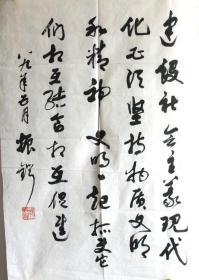 建设社会主义现代
化必须坚持物质文明
和精神文明一起抓使它
们相互结合相互促进
八九年五月 振铎